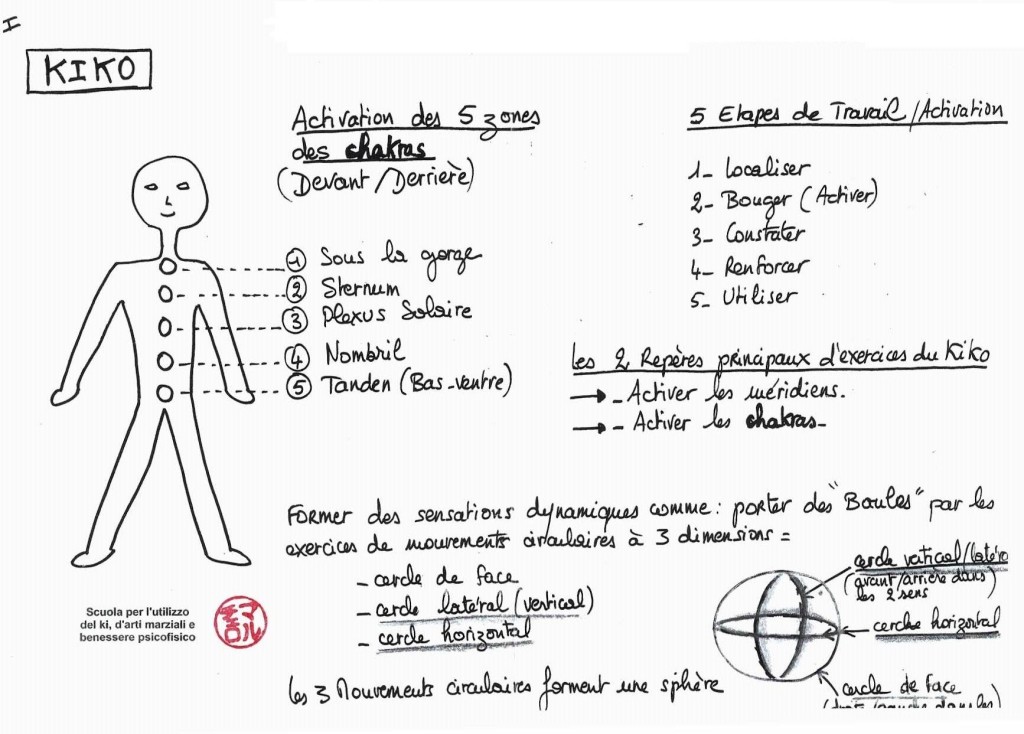 I
KIKO
Activation des 5 zones
des chakras
(Devant/Derrière)
1 Sous la gorge
2 Sternum
3 Plexus Solaire
4 Nombril
5 Tanden (Bas-ventre)
5 Etapes de Travail/Activation
1- Localiser
2- Bouger (Activer)
3- Constater
4- Renforcer
5- Utiliser
les 2 Repères principaux d'exercices du Kiko
→ - Activer les méridiens.
→ - Activer les chakras-
Former des sensations dynamiques comme : porter des "Boules" par les
exercices de mouvements circulaires à 3 dimensions =
- cercle de face
- cercle latéral (vertical)
- cercle horizontal
les 3 Mouvements circulaires forment une sphère
cercle vertical/latéra
(avant/arrière dans)
les 2 sens
cercle horizontal
cercle de face
Scuola per l'utilizzo
del ki, d'arti marziali e
benessere psicofisico